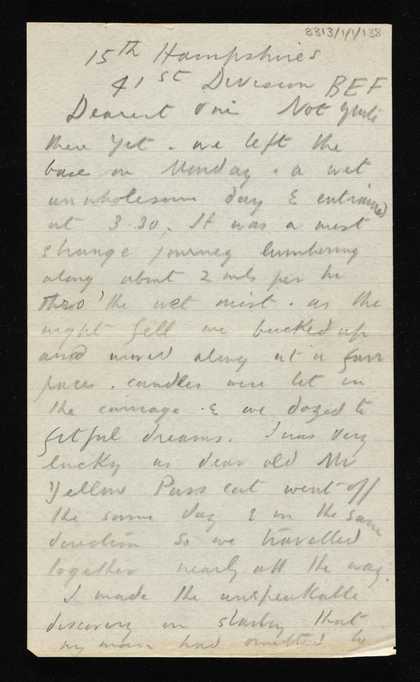 8313/1/1/138
15th Hampshires
41st Division BEF
Dearest one Not quite
there yet. we left the
base on Monday. a wet
unwholesome day & entrained
at 3.30. It was a most
strange journey lumbering
along about 2 mls per hr
thro' the wet mist. as the
night fell we bucked up
and moved along at a fair
pace. candles were let in
the carriage. & we dozed to
fitful dreams. I was very
lucky as dear old Mr
Yellow Puss cat went off
the same day & in the same
direction so we travelled
together nearly all the way.
I made the unspeakable
discovery on starting that
my man had omitted to